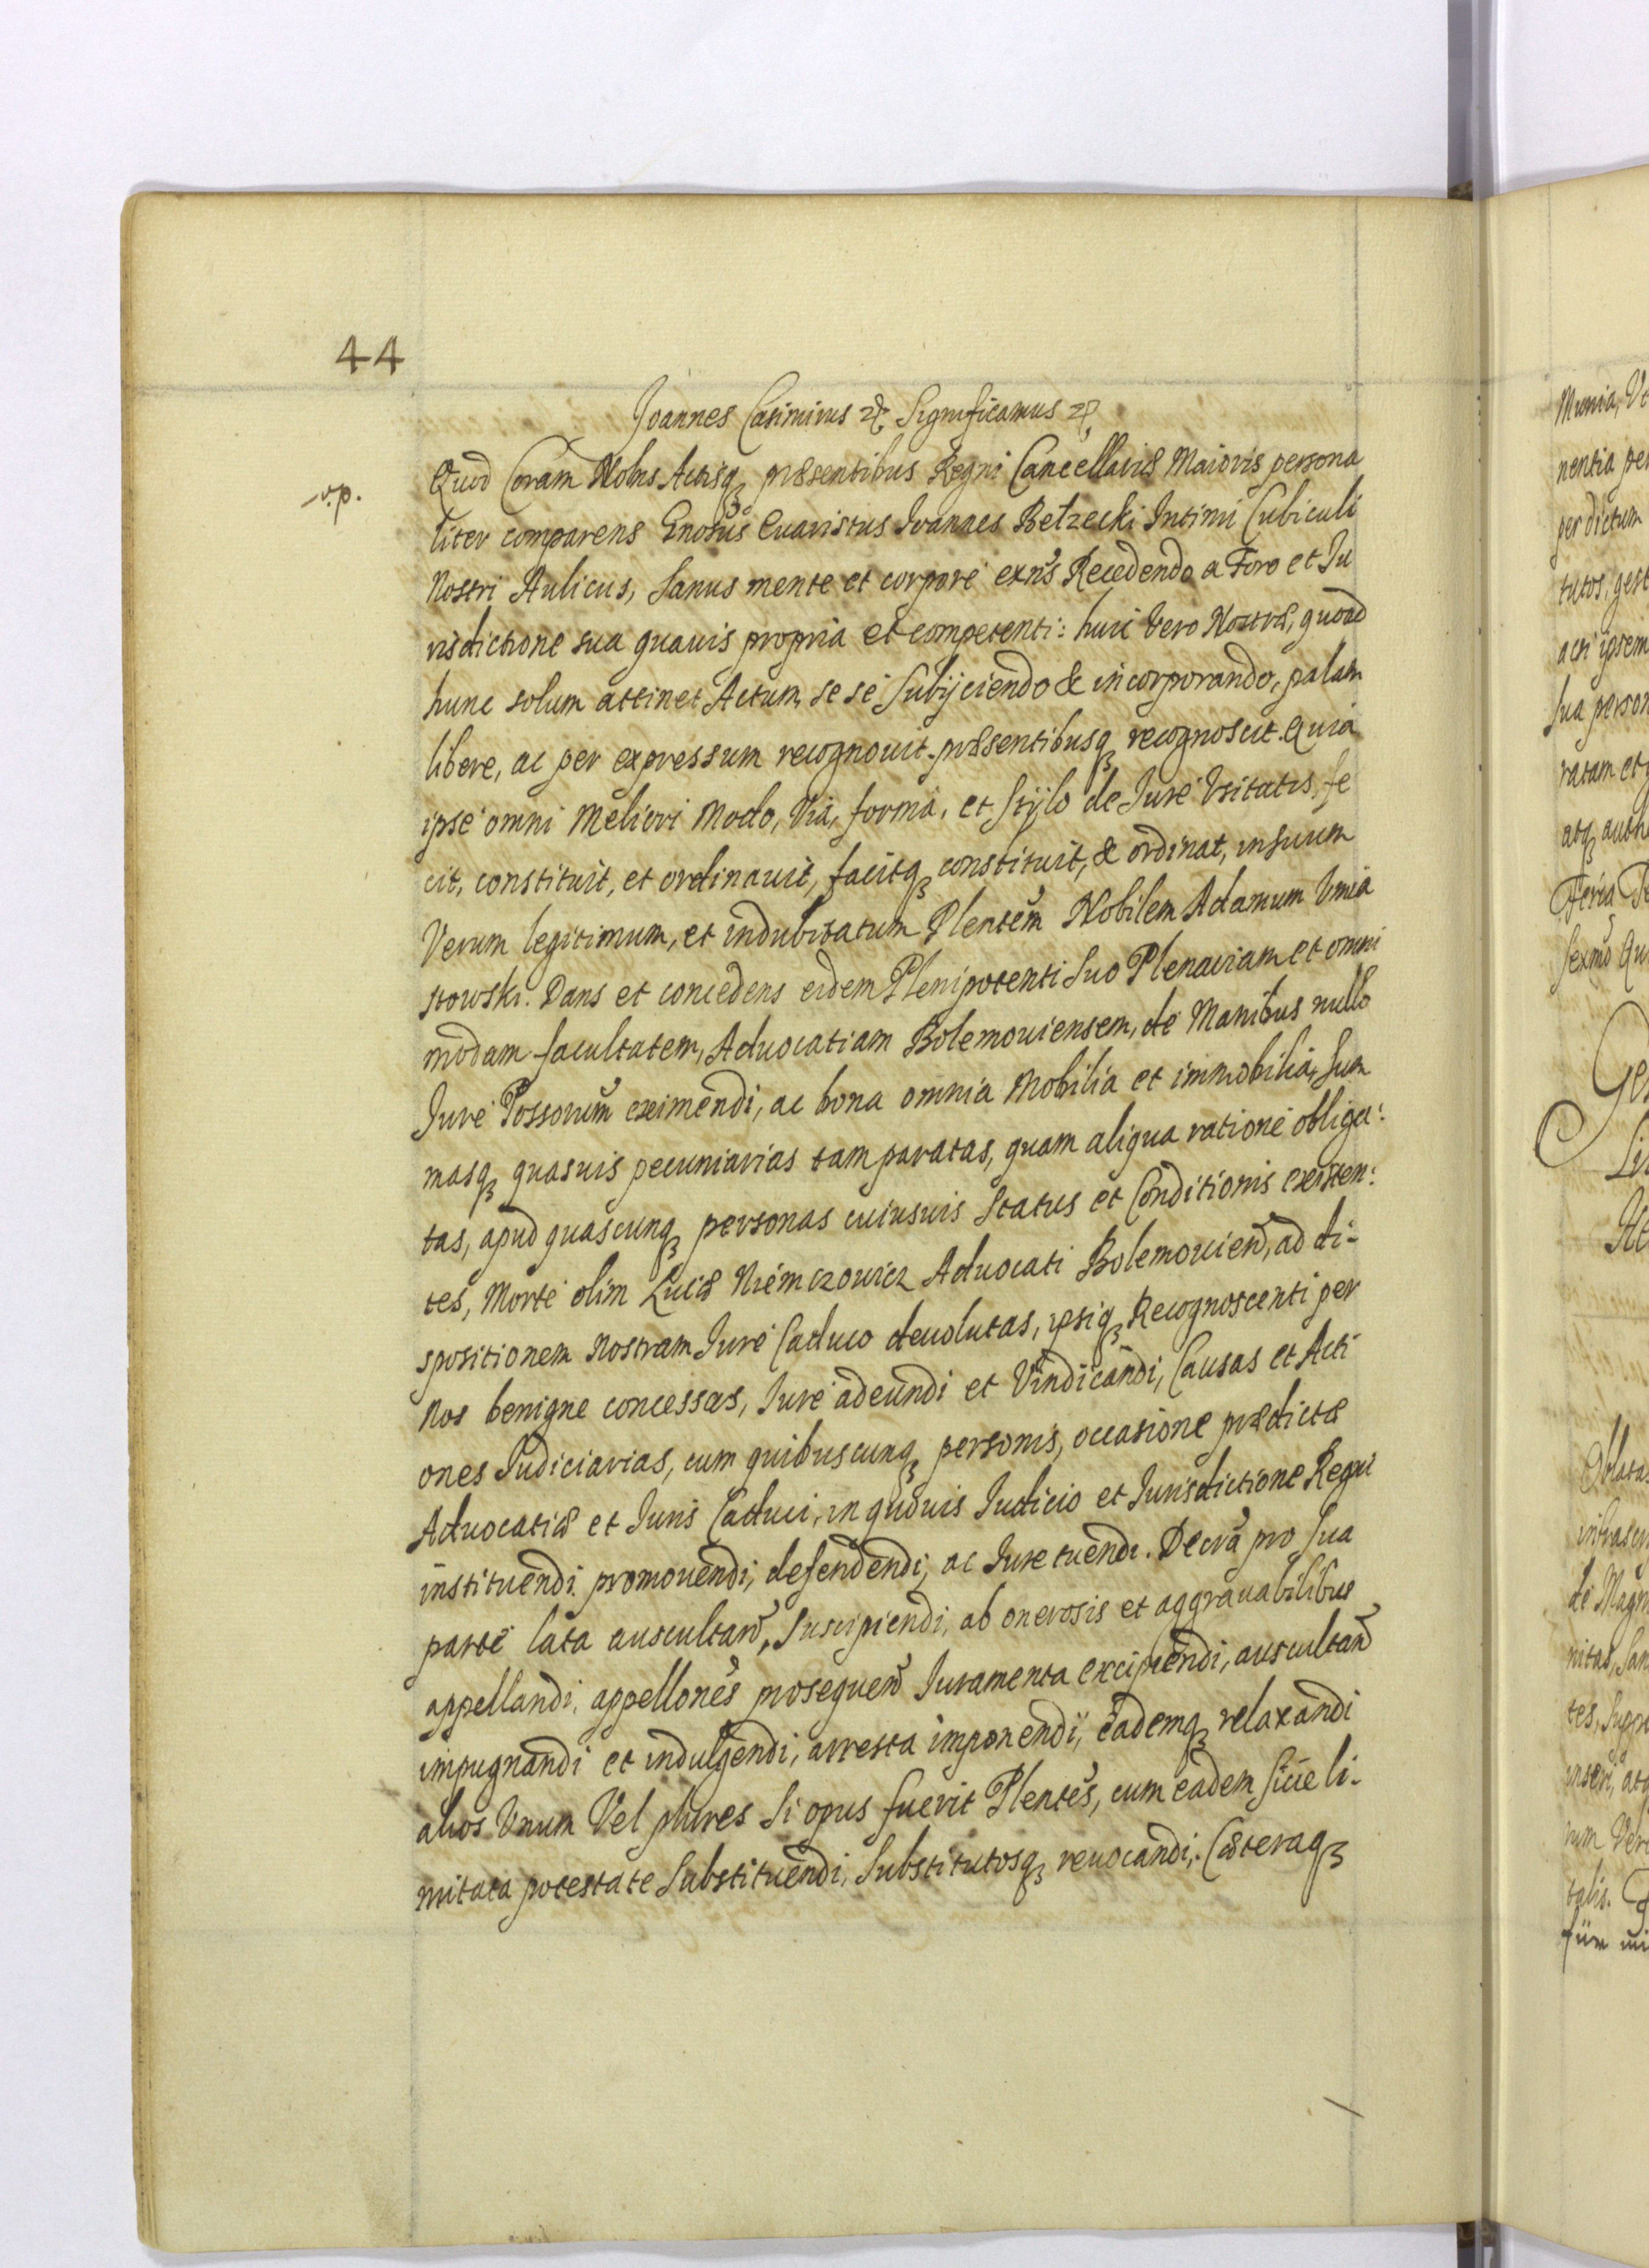 44
Joannes Casimirus etc. Significamus etc.
v.p.
Quod Coram Nobis Actisq3 præsentibus Regni Cancellariæ Maioris persona
liter comparens Gnosus Euaristus Joannes Bełzecki Intimi Cubiculi
Nostri Aulicus, Sanus mente et corpore exns Recedendo a Foro et Ju
risdictione sua quauis propria et competenti: huic Vero Nostræ, quoad
hunc solum attinet Actum, se se Subijciendo & incorporando, palam
libere, ac per expressum recognouit. præsentibusq3 recognoscit. Quia
ipse omni Meliori Modo, Via, forma, et Stijlo de Jure Vsitatis, fe
cit, constituit, et ordinauit, facitq3 constituit, & ordinat, in suum
Verum legitimum, et indubitatum Plentem Nobilem Adamum Vmia
stowski. Dans et concedens eidem Plenipotenti Suo Plenariam et omni
modam facultatem, Aduocatiam Bolemouiensem, de Manibus nullo
Jure Possorum eximendi, ac bona omnia Mobilia et immobilia, Sum
masq3 quasuis pecuniarias tam paratas, quam aliqua ratione obliga:
tas, apud quascunq3 personas cuiusuis Status et Conditionis existen:
tes, Morte olim Lucæ Niemczowicz Aduocati Bolemouien, ad di-
spositionem Nostram Jure Caduco deuolutas, ipsiq3 Recognoscenti per
Nos benigne concessas, Jure adeundi et Vindicandi, Causas et Acti
ones Judiciarias, cum quibuscunq3 personis, occasione prædictæ
Aduocatiæ et Juris Caduci, in quouis Judicio et Jurisdictione Regni
instituendi promouendi, defendendi, ac Jure tuendi. Decra pro sua
parte lata auscultand, Suscipiendi, ab onerosis et aggrauabilibus
appellandi, appellones prosequend Juramenta excipiendi, auscultand
impugnandi et indulgendi, arresta imponendi, eademq3 relaxandi
alios Vnum Vel plures Si opus fuerit Plentes, cum eadem siue li-
mitata potestate Substituendi, Substitutosq3 reuocandi, Cæteraq3